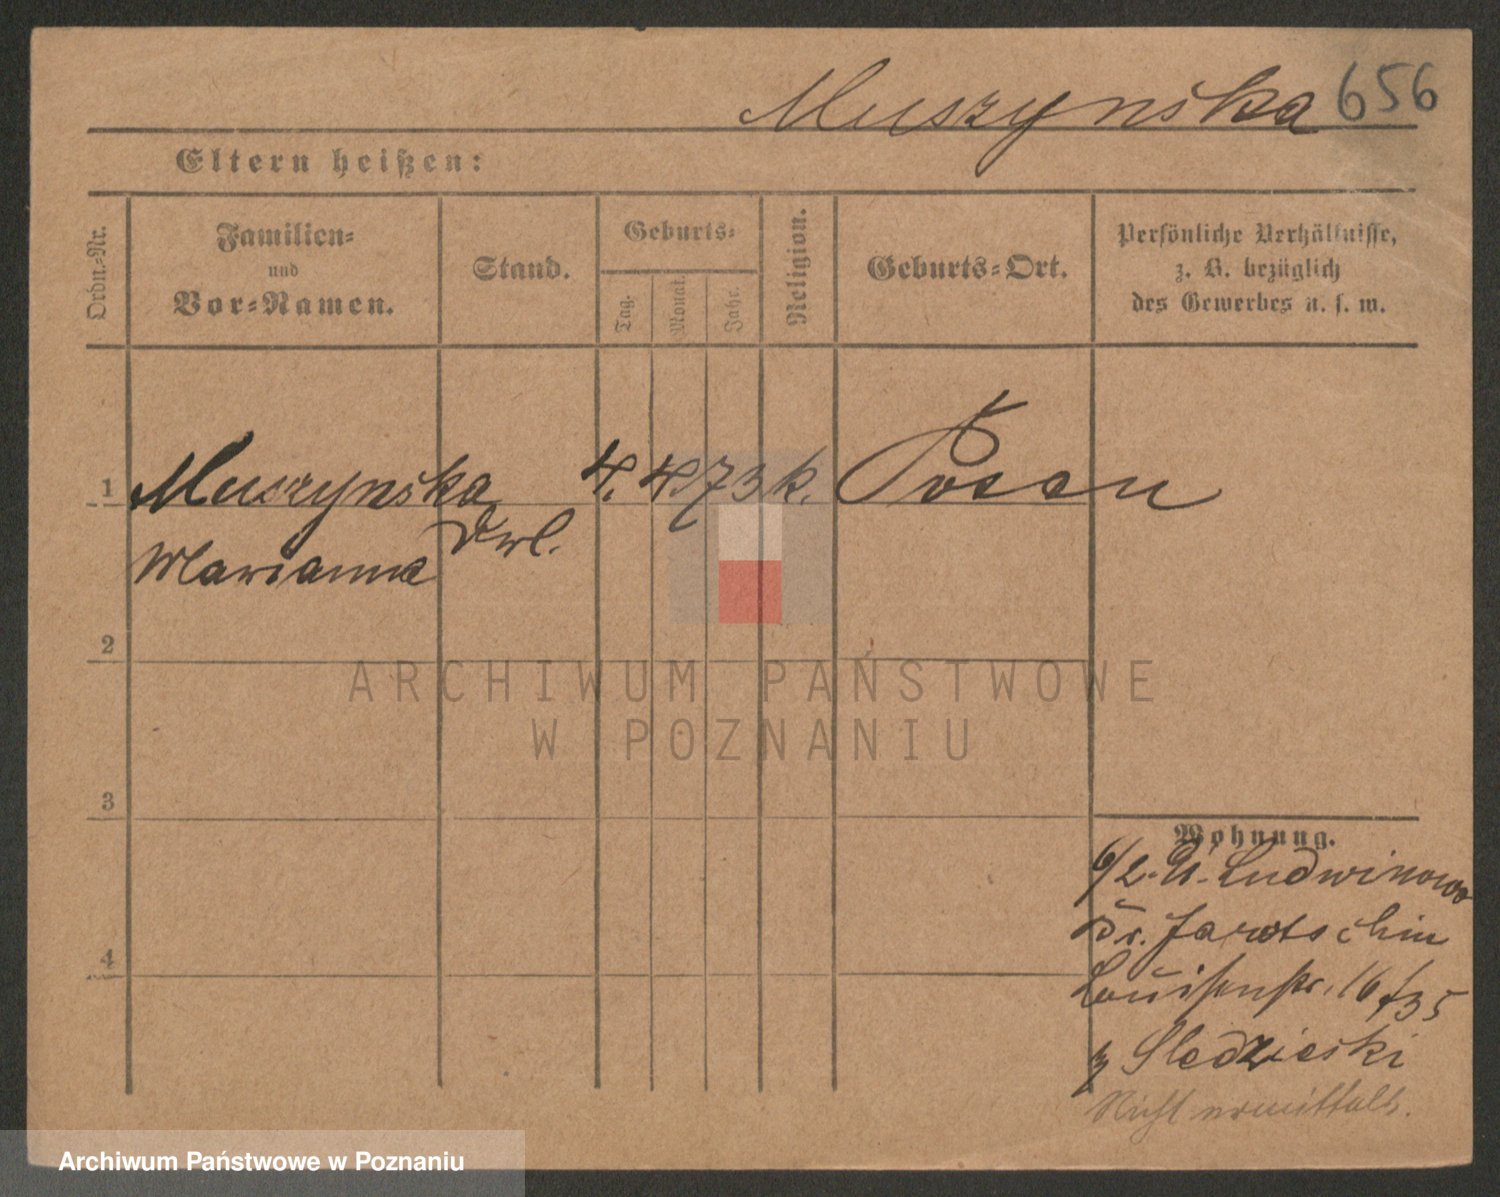 Muszynska 656
Eltern heißen:
Ordn.-Nr.
Familien-
und
Vor-Namen.
Stand.
Geburts-
Tag.
Monat.
Jahr.
Religion.
Geburts-Ort.
Persönliche Verhältnisse,
z. B. bezüglich
des Gewerbes u. s. w.
1 Muszynska 4. 4. 73 k. Posen
Marianna
2
ARCHIWUM PAŃSTWOWE
W POZNANIU
3
Wohnung.
Ludwinowo
Kr. Jarotschin
Louisenstr. 16
Sledzieski
4
Nicht ermittelt.
Archiwum Państwowe w Poznaniu